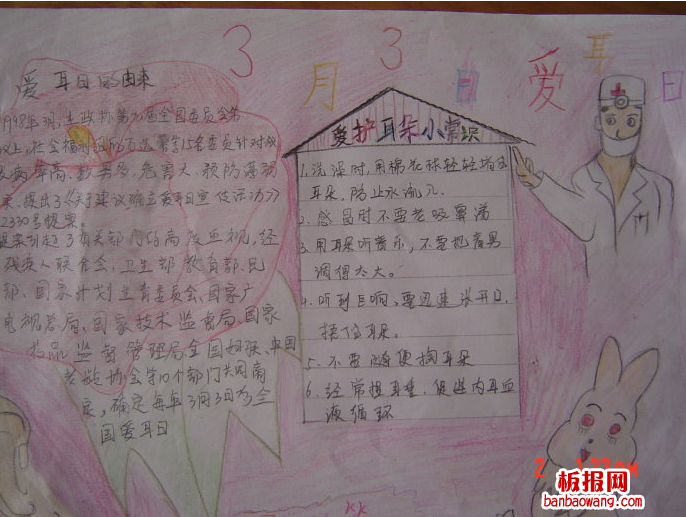 3月3日爱耳日
爱耳日的由来
1998年3月,在政协第九届全国委员会第
社会福利 15名委员针对
率高、数多、危害大、预防薄弱
提出了《关于建议确立爱耳日宣传活动》
2330号提案。
提案引起了有关部门的高度重视,经
残疾人联合会、卫生部 教育部、民
部、国家计划生育委员会、国家广
电视总局、国家技术监督局、国家
药品监督管理局、全国妇联、中国
老龄协会等10个部门共同商
定,确定每年3月3日为全
国爱耳日
爱护耳朵小常识
1.洗澡时,用棉花球轻轻堵住
耳朵,防止水流入。
2.感冒时不要老吸鼻涕
3.用耳朵听音乐,不要把音器
调得太大。
4.听到巨响,要迅速张开口,
捂住耳朵。
5.不要随便掏耳朵
6.经常捏耳垂,促进内耳血
液循环
板报网
banbaowang.com